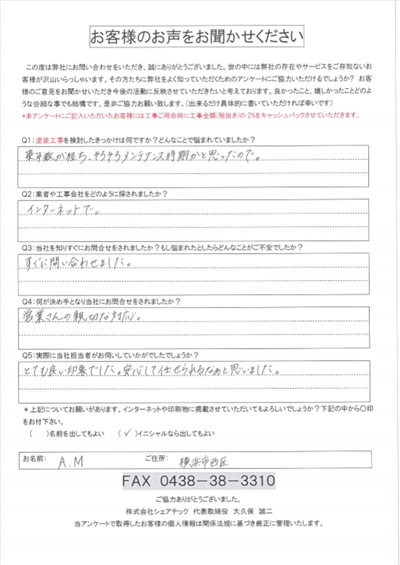 お客様のお声をお聞かせください
この度は弊社にお問い合わせをいただき、誠にありがとうございました。世の中には弊社の存在やサービスをご存知ないお
客様が沢山いらっしゃいます。その方たちに弊社をよく知っていただくためのアンケートにご協力いただけるでしょうか？ お客
様のご意見をお聞かせいただき今後の活動に反映させていただきたいと考えております。良かったこと、嬉しかったことどのよ
うな些細な事でも結構です。是非ご協力お願い致します。（出来るだけ具体的に書いていただければ幸いです）
*本アンケートにご記入いただいたお客様には工事ご用命時に工事金額（税抜き）の 2%をキャッシュバックさせていただきます。
Q1：塗装工事を検討したきっかけは何ですか？どんなことで悩まれていましたか？
年数が経ち、そろそろメンテナンス時期かと思ったので。
Q2：業者や工事会社をどのように探されましたか？
インターネットで。
Q3：当社を知りすぐにお問合せをされましたか？もし悩まれたとしたらどんなことがご不安でしたか？
すぐに問い合わせました。
Q4：何が決め手となり当社にお問合せをされましたか？
営業さんの親切な対応。
Q5：実際に当社担当者がお伺いしていかがでしたでしょうか？
とても良い印象でした。安心して任せられるなあと思いました。
＊上記についてお願いがあります。インターネットや印刷物に掲載させていただいてもよろしいでしょうか？下記の中から〇印
をお付下さい。
（ ）名前を出してもよい （✓）イニシャルなら出してもよい
お名前： A.M ご住所： 横浜市西区
FAX 0438-38-3310
ご協力ありがとうございました。
株式会社シェアテック 代表取締役 大久保 誠二
当アンケートで取得したお客様の個人情報は関係法規に基づき厳正に管理いたします。